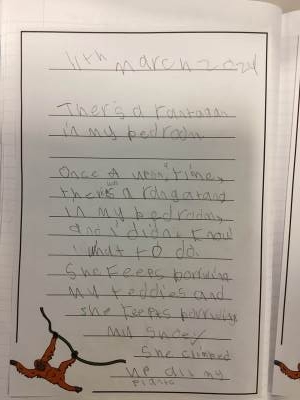 11th march 2024
There's a rantann
in my bedroom
Once a upon time,
there was a rangatang
in my bedroom,
and I didn't know
what to do.
She keeps borrwin
my teddies and
she keeps borrwing
my
she climbed
up all my
plants